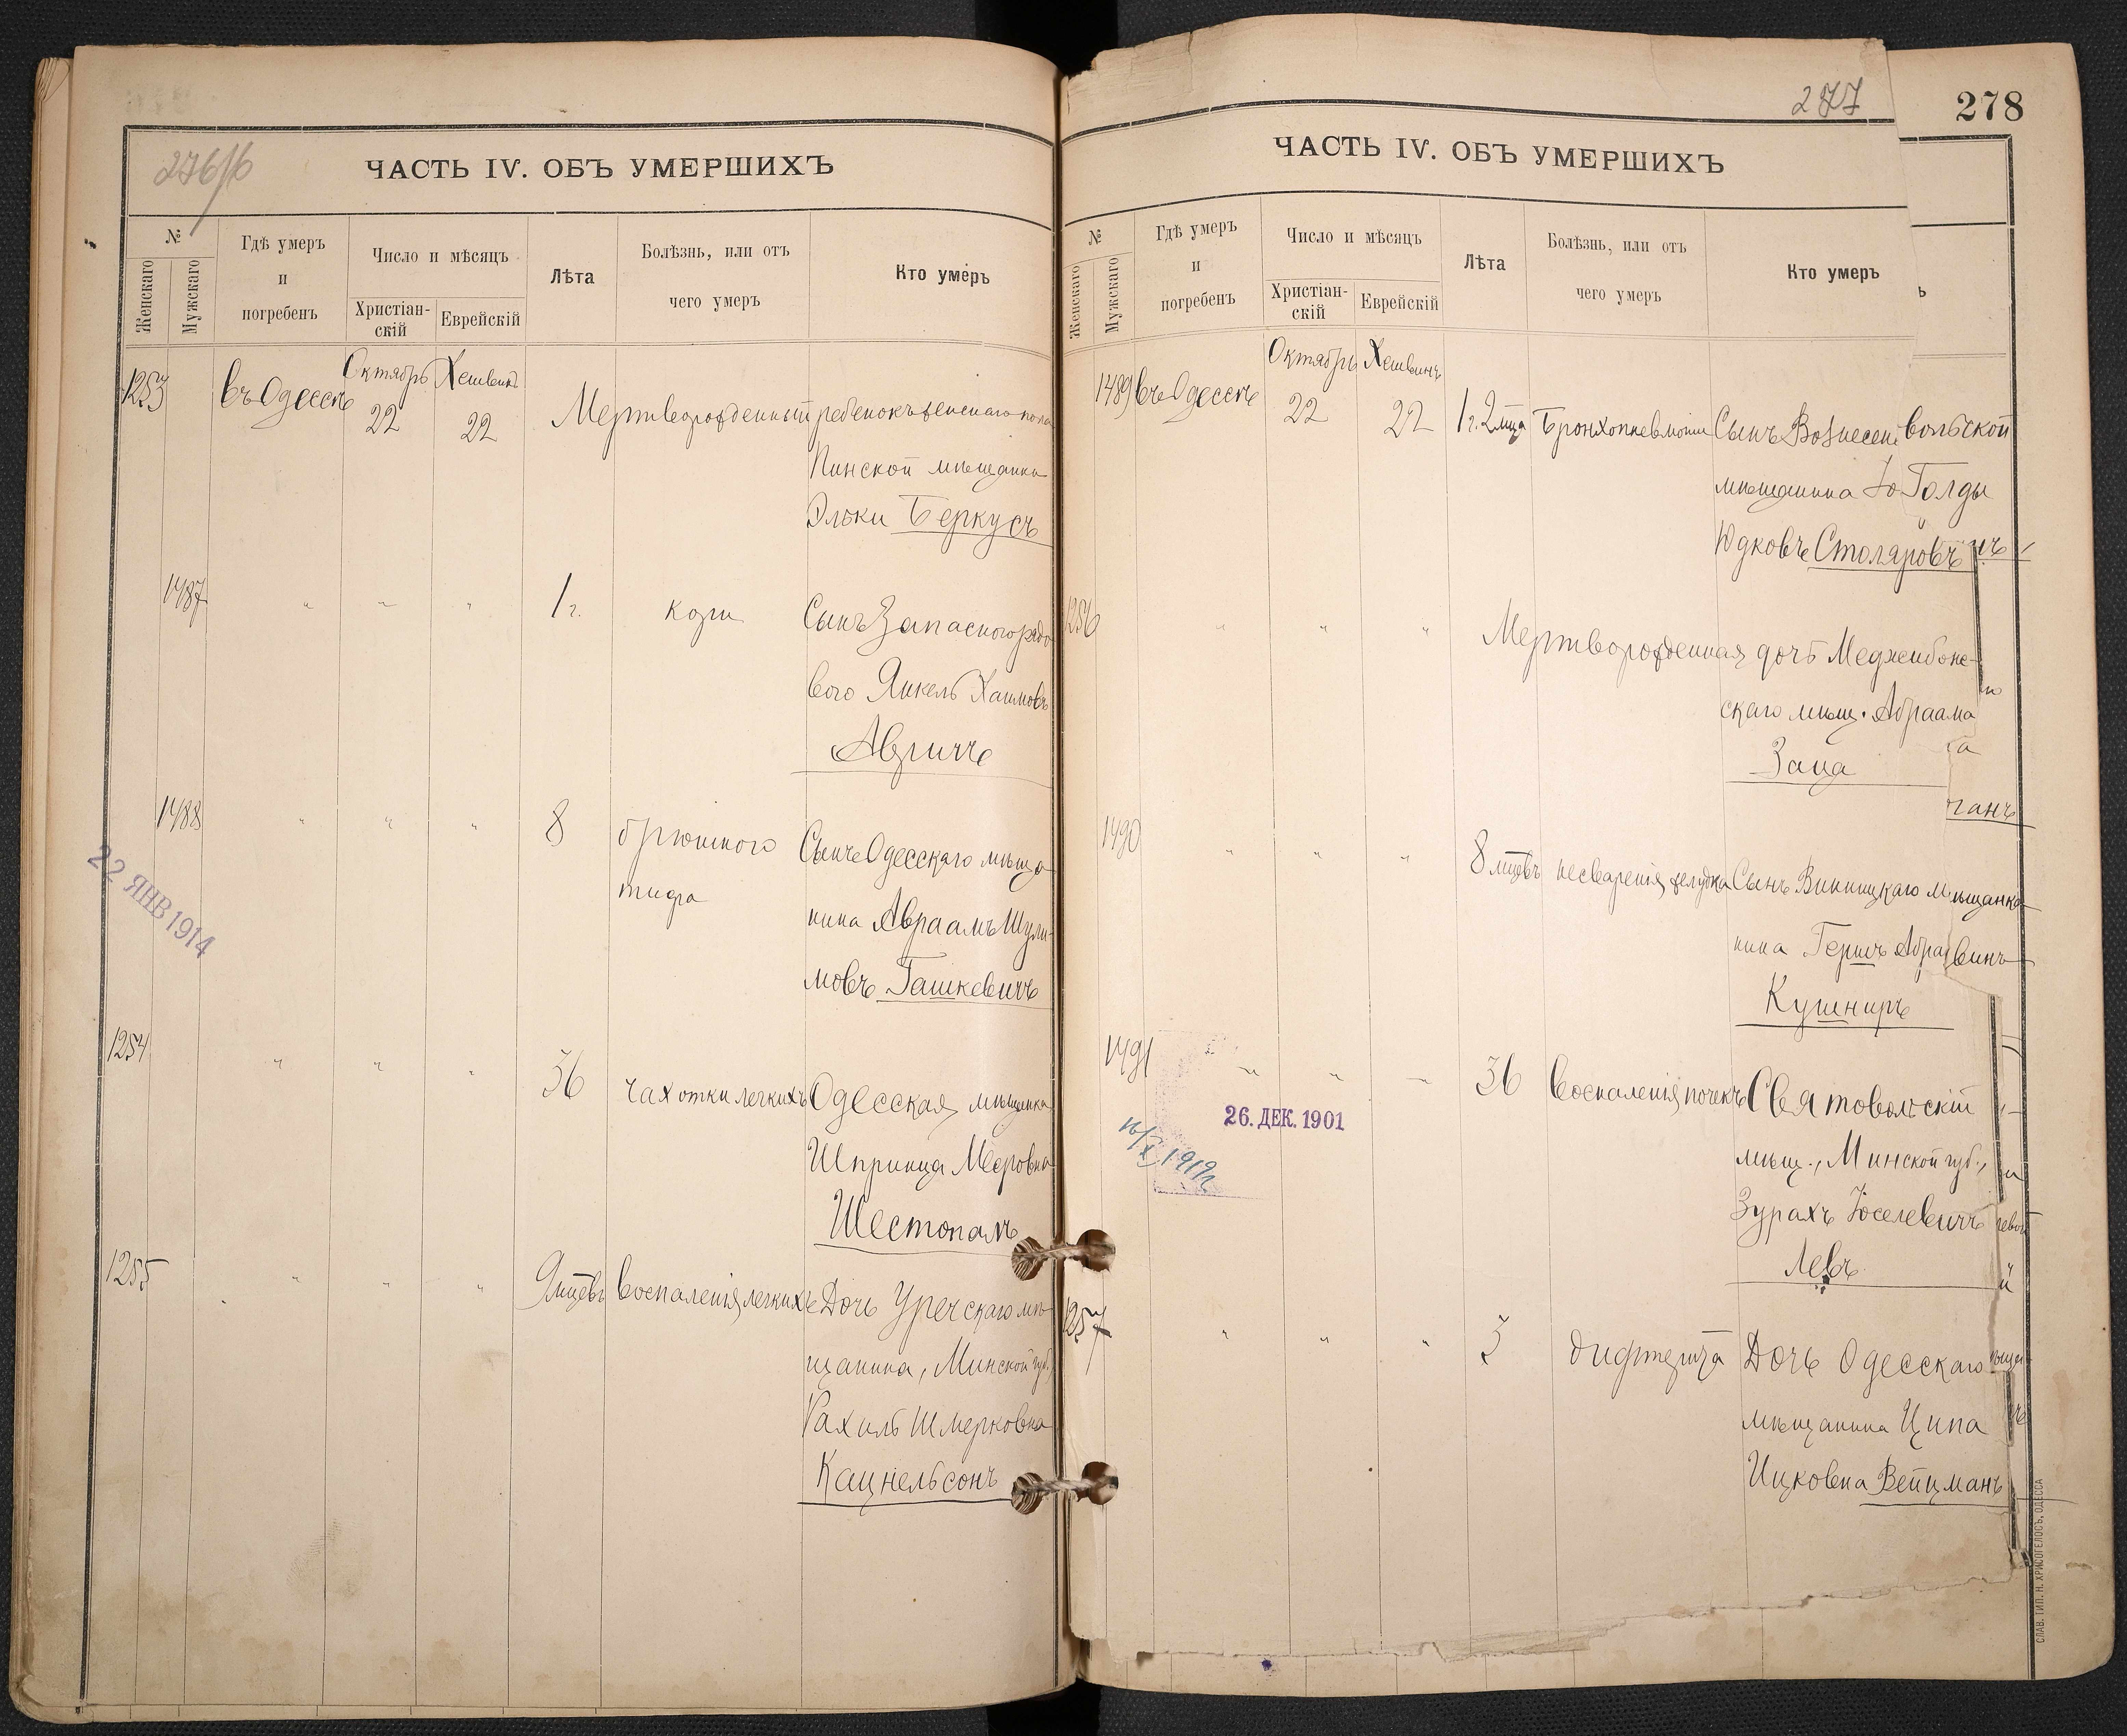 276/б
ЧАСТЬ IV. ОБЪ УМЕРШИХЪ
№
Женскаго
Мужскаго
Гдѣ умеръ
и
погребенъ
Число и мѣсяцъ
Христіан-
скій
Еврейскій
Лѣта
Болѣзнь, или отъ
чего умеръ
Кто умеръ
Октябрь Хешвинъ
1253 въ Одессѣ 22 22 Мертворожденный ребенокъ женскаго пола
Пинской мѣщанки
Эльки Беркусъ
1487 " " " 1 г. кори Сынъ Запаснаго рядо
вого Янкель Хаимовъ
1488 " " " 8 брюшного Сынъ Одесскаго мѣща
тифа нина Авраамъ Шули-
мовъ Гашкевичъ
22 ЯНВ 1914
1254 " " " 36 чахотки легкихъ Одесская мѣщанка
Шпринца Мееровна
Шестопалъ
1255 " " " 9 мцевъ воспаленія легкихъ Дочь Уречскаго мѣ-
щанина, Минской губ.
Рахиль Шмерковна
Кацнельсонъ
277
ЧАСТЬ IV. ОБЪ УМЕРШИХЪ
№
Женскаго
Мужскаго
Гдѣ умеръ
и
погребенъ
Число и мѣсяцъ
Христіан-
скій
Еврейскій
Лѣта
Болѣзнь, или отъ
чего умеръ
Кто умеръ
Октябрь Хешвинъ
1489 въ Одессѣ 22 22 1 г. 2 мца Бронхопневмоніи Сынъ Вознесен
мѣщанина
Юдковъ Столяровъ
1256 " " " Мертворожденная дочь Меджибож-
скаго мѣщ. Абраама
Заца
1490 " " " 8 мцевъ несваренія желудка Сынъ Винницкаго мѣща
нина Гершъ Абра
Кушниръ
1491 " " " 36 воспаленія почекъ Святовольскій
мѣщ., Минской губ.,
Зурахъ Іоселевичъ
Левъ
26. ДЕК. 1901
1257 " " " 3 дифтерита Дочь Одесскаго
мѣщанина Ципа
Ицковна Вейцманъ
278
вольской
Голды
ганъ
щанка
винъ
СЛАВ. ТИП. Н. ХРИСОГЕЛОСЪ, ОДЕССА